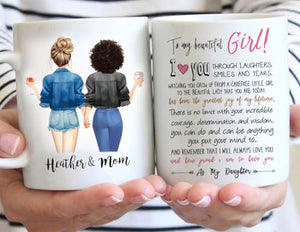 Heather & Mom
To my beautiful Girl!
I YOU THROUGH LAUGHTERS,
SMILES AND TEARS,
WATCHING YOU GROW UP FROM A CAREFREE LITTLE GIRL
TO THE BEAUTIFUL LADY THAT YOU ARE TODAY
has been the greatest joy of my lifetime,
There is no limit with your incredible
courage, determination and wisdom,
you can do and can be anything
you put your mind to,
AND REMEMBER THAT I WILL ALWAYS LOVE YOU
and how proud I am to have you
As My Daughter